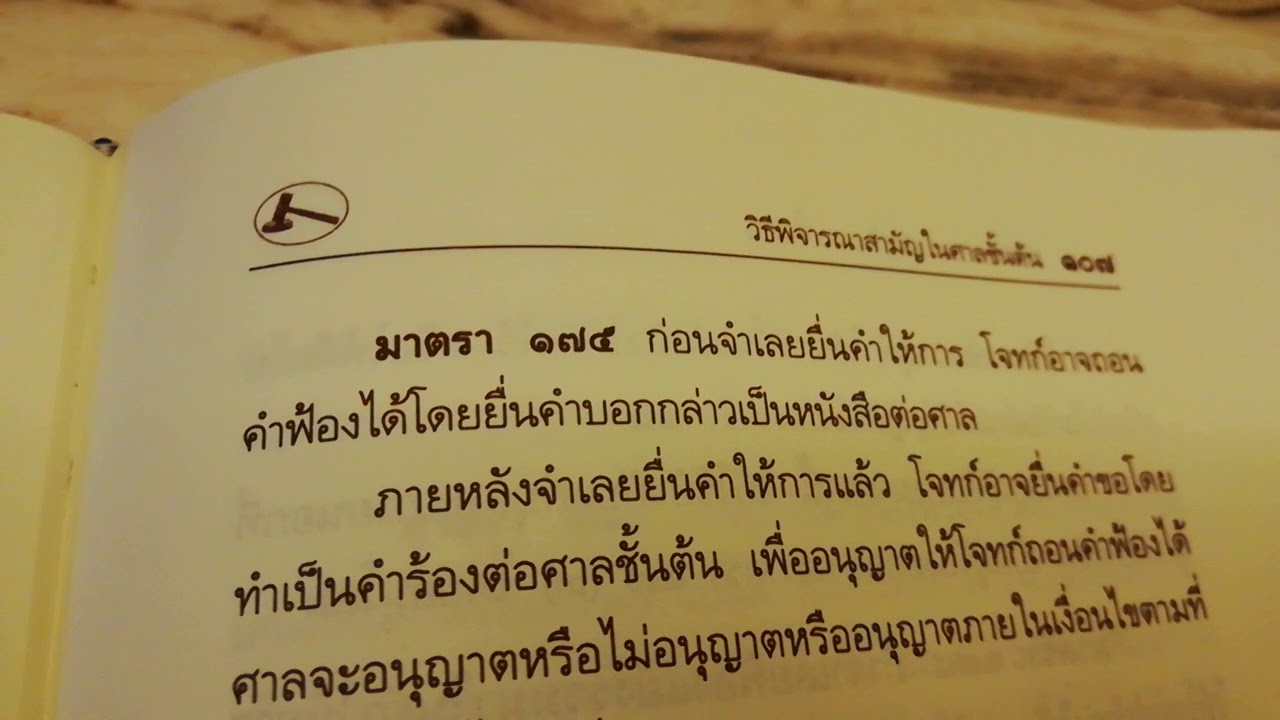 วิธีพิจารณาสามัญในศาลชั้นต้น ๑๐๗
มาตรา ๑๗๕ ก่อนจำเลยยื่นคำให้การ โจทก์อาจถอน
คำฟ้องได้โดยยื่นคำบอกกล่าวเป็นหนังสือต่อศาล
ภายหลังจำเลยยื่นคำให้การแล้ว โจทก์อาจยื่นคำขอโดย
ทำเป็นคำร้องต่อศาลชั้นต้น เพื่ออนุญาตให้โจทก์ถอนคำฟ้องได้
ศาลจะอนุญาตหรือไม่อนุญาตหรืออนุญาตภายในเงื่อนไขตามที่